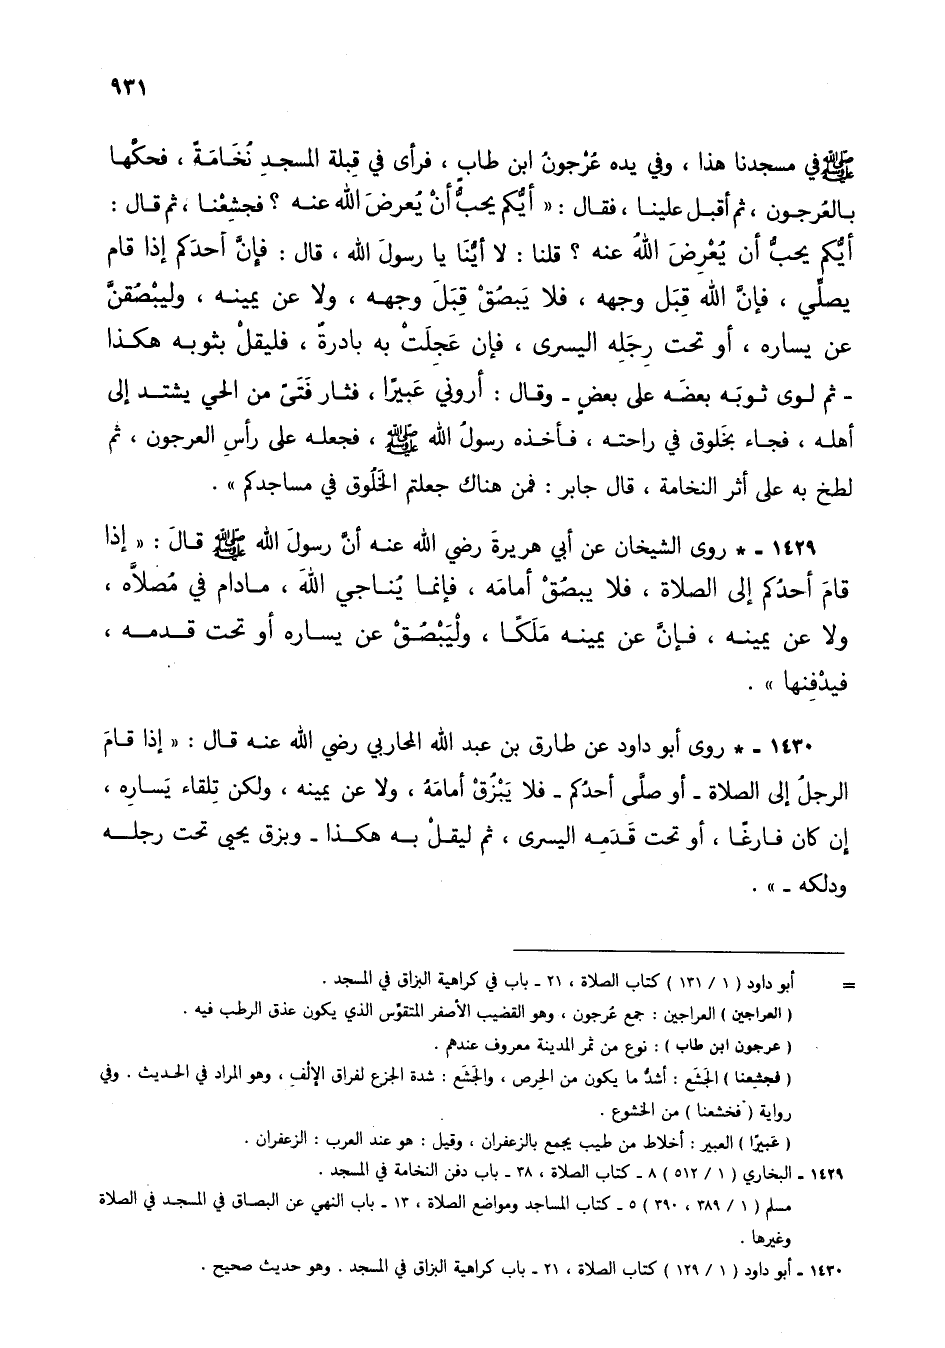 ٩٣١
ﷺ في مسجدنا هذا ، وفي يده عُرْجونُ ابن طابٍ ، فرأى في قِبلة المسجدِ نُخَامَةً ، فحكّها
بالعُرجون ، ثم أقبل علينا ، فقال : « أيُّكم يحبُّ أنْ يُعرضَ الله عنه ؟ فجشِعْنا ، ثم قال :
أيُّكم يحبُّ أن يُعْرِضَ اللهُ عنه ؟ قلنا : لا أيُّنَا يا رسولَ الله ، قال : فإنَّ أحدَكم إذا قام
يصلِّي ، فإنَّ الله قِبَل وجهه ، فلا يَبصُقْ قِبَلَ وجهه ، ولا عن يمينه ، وليبْصُقنَّ
عن يساره ، أو تحت رِجلِه اليسرى ، فإن عَجِلَتْ به بادرةٌ ، فليقلْ بثوبه هكذا
- ثم لوى ثوبَه بعضَه على بعضٍ ـ وقال : أروني عَبيرًا ، فثار فَتَىً من الحي يشتد إلى
أهله ، فجاء بخَلوق في راحته ، فأخذه رسولُ الله ﷺ ، فجعله على رأسِ العرجون ، ثم
لطخ به على أثر النخامة ، قال جابر : فمن هناك جعلتم الخَلُوق في مساجدكم » .
١٤٢٩ ـ * روى الشيخان عن أبي هريرةَ رضي الله عنه أنَّ رسولَ الله ﷺ قالَ : « إذا
قامَ أحدُكم إلى الصلاة ، فلا يبصُقْ أمامَه ، فإنما يُناجي اللهَ ، مادام في مُصلاَّه ،
ولا عن يمينه ، فإنَّ عن يمينه مَلَكًا ، ولْيَبْصُقْ عن يساره أو تحت قدمه ،
فيدْفِنها » .
١٤٣٠ ـ * روى أبو داود عن طارق بن عبد الله المحاربي رضي الله عنه قال : « إذا قامَ
الرجلُ إلى الصلاة ـ أو صلَّى أحدُكم ـ فلا يَبْزُقْ أمامَهُ ، ولا عن يمينه ، ولكن تِلقاء يَسارِه ،
إن كان فارغًا ، أو تحت قَدَمِه اليسرى ، ثم ليقلْ به هكذا ـ وبزق يحيى تحت رجله
ودلكه ـ » .
= أبو داود ( ١ / ١٣١ ) كتاب الصلاة ، ٢١ ـ باب في كراهية البزاق في المسجد .
( العراجين ) العراجين : جمع عُرجون ، وهو القضيب الأصفر المتقوِّس الذي يكون عذق الرطب فيه .
( عرجون ابن طاب ) : نوع من تمر المدينة معروف عندهم .
( فجشعنا ) الجَشَع : أشدُّ ما يكون من الحِرص ، والجَشَع : شدة الجزع لفراق الإلْفِ ، وهو المراد في الحديث . وفي
رواية ( فخشعنا ) من الخشوع .
( عَبيرًا ) العبير : أخلاط من طيب يجمع بالزعفران ، وقيل : هو عند العرب : الزعفران .
١٤٢٩ ـ البخاري ( ١ / ٥١٢ ) ٨ ـ كتاب الصلاة ، ٣٨ ـ باب دفن النخامة في المسجد .
مسلم ( ١ / ٣٨٩ ، ٣٩٠ ) ٥ ـ كتاب المساجد ومواضع الصلاة ، ١٣ ـ باب النهي عن البصاق في المسجد في الصلاة
وغيرها .
١٤٣٠ ـ أبو داود ( ١ / ١٢٩ ) كتاب الصلاة ، ٢١ ـ باب كراهية البزاق في المسجد . وهو حديث صحيح .